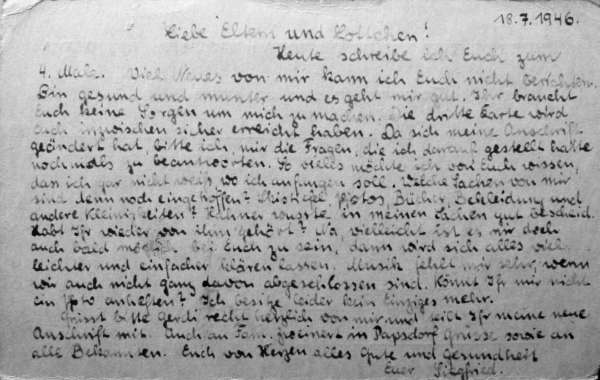 18.7.1946.
Liebe Eltern und Lottchen!
Heute schreibe ich Euch zum
4. Male. Viel Neues von mir kann ich Euch nicht berichten.
Bin gesund und munter und es geht mir gut. Ihr braucht
Euch keine Sorgen um mich zu machen. Die dritte Karte wird
Euch inzwischen sicher erreicht haben. Da sich meine Anschrift
geändert hat, bitte ich, mir die Fragen, die ich darauf gestellt hatte
nochmals zu beantworten. So vieles möchte ich von Euch wissen,
das ich gar nicht weiß wo ich anfangen soll. Welche Sachen von mir
sind denn noch eingetroffen? Photos, Bücher, Bekleidung und
andere Kleinigkeiten? wusste in meinen Sachen gut bescheid.
Habt Ihr wieder von ihm gehört? Na, vielleicht ist es mir doch
auch bald möglich bei Euch zu sein, dann wird sich alles viel
leichter und einfacher klären lassen. Musik fehlt mir sehr, wenn
wir auch nicht ganz davon abgeschlossen sind. Könnt Ihr mir nicht
ein Foto anheften? Ich besitze leider kein Einziges mehr.
Grüsst bitte Gerdi recht herzlich von mir und teilt Ihr meine neue
Anschrift mit. Auch an Fam. in Papsdorf Grüsse sowie an
alle Bekannten. Euch von Herzen alles Gute und Gesundheit
Euer Siegfried.